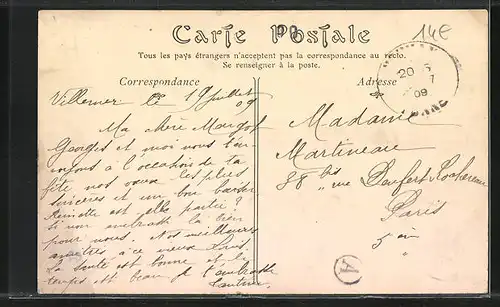 Carte Postale
14€
Tous les pays étrangers n'acceptent pas la correspondance au recto.
Se renseigner à la poste.
Correspondance
Adresse
Villemer le 19 Juillet
09
Ma chère Margot
Georges et moi vous
envoyons à l'occasion de ta
fête nos vœux les plus
sincères et un bon baiser
est elle partie ?
si non embrasse la bien
pour vous. Nos meilleures
amitiés à ce vieux Louis.
La santé est bonne et le
temps est beau je t'embrasse
Madame
Martineau
88 bis rue Denfert-Rochereau
Paris
5 em
20
7
09
A